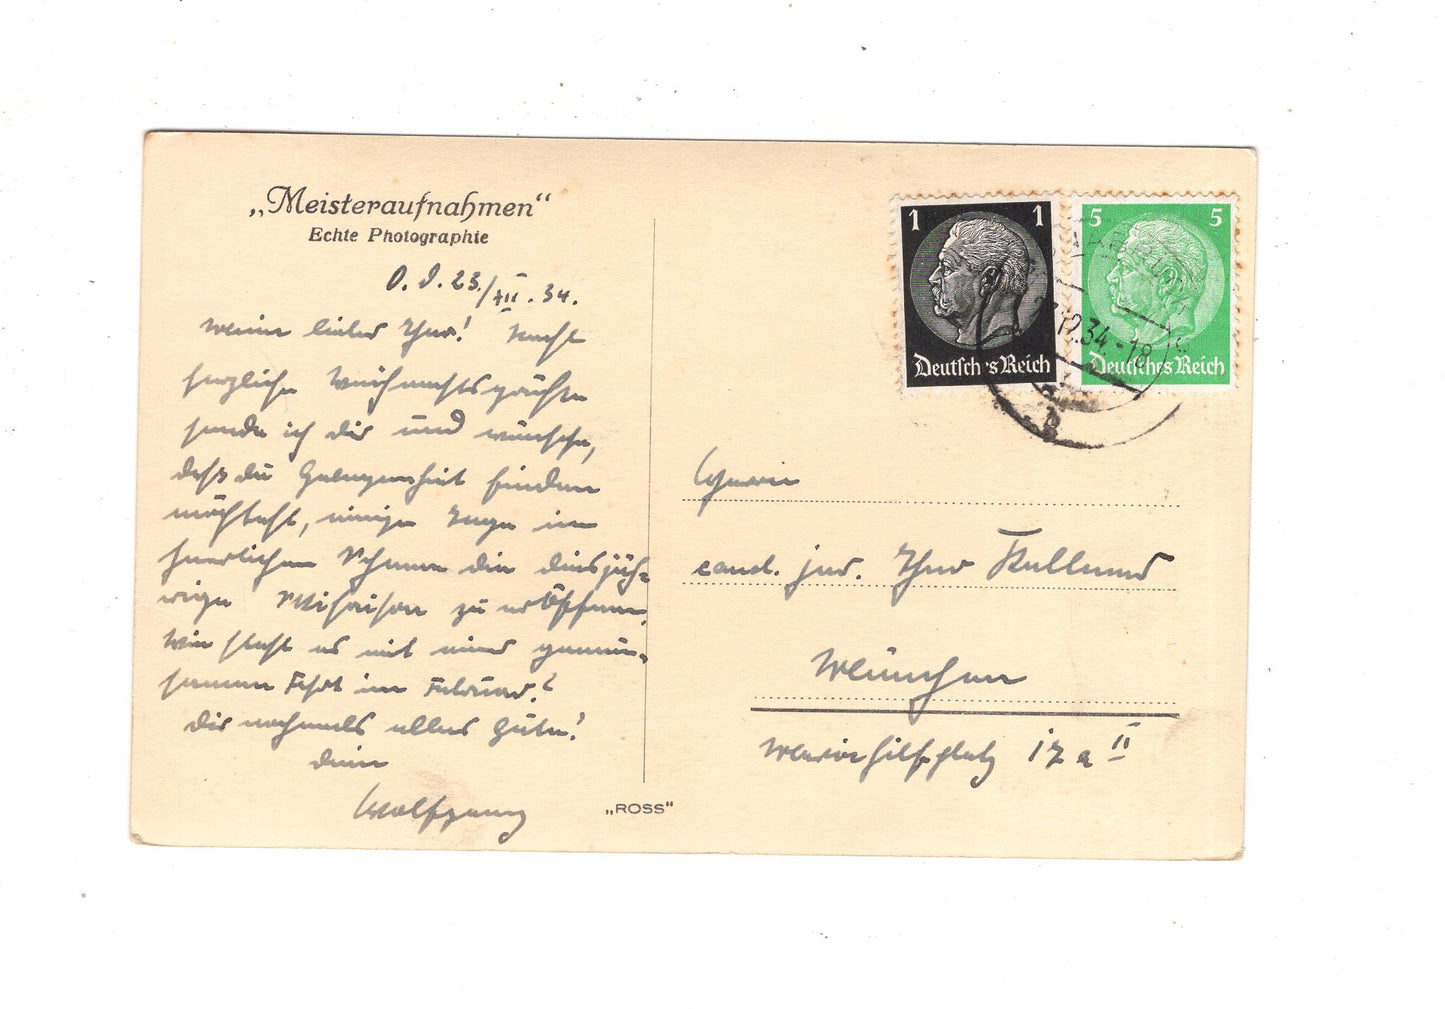 „Meisteraufnahmen“
Echte Photographie
O. d. 23./XII. 34.
Mein lieber Theo! Recht
herzliche Weihnachtsgrüße
sende ich dir und wünsche,
daß du Gelegenheit finden
möchtest, einige Tage im
herrlichen Schnee die diesjäh-
rige Skisaison zu eröffnen.
Wie steht es mit einer gemein-
samen Fahrt im Februar?
Dir nochmals alles Gute!
dein
Wolfgang
„ROSS“
1 1
Deutsches Reich
5 5
Deutsches Reich
12.34-18
Herrn
cand. jur. Theo
München
Mariahilfplatz 17 a II